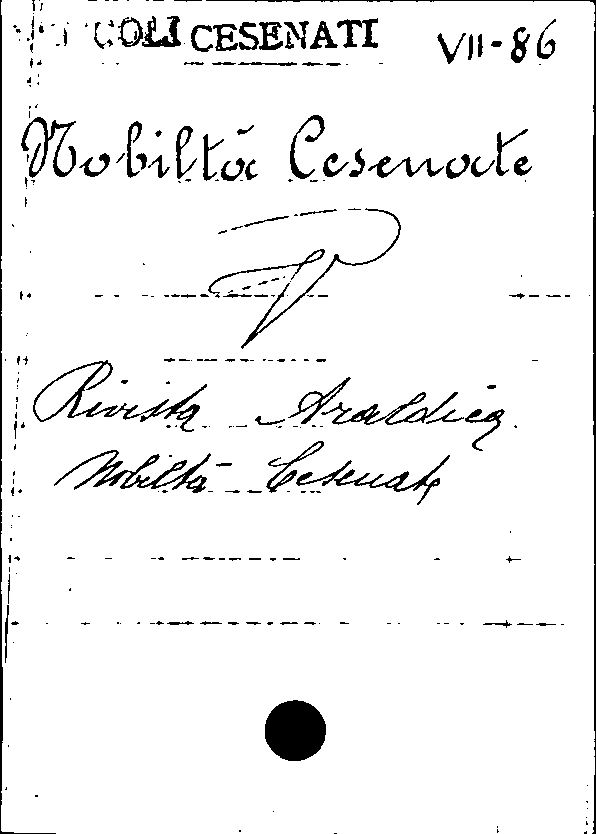 COLI CESENATI VII-86
Nobiltà Cesenate
Rivista Araldica
Nobiltà Cesenate